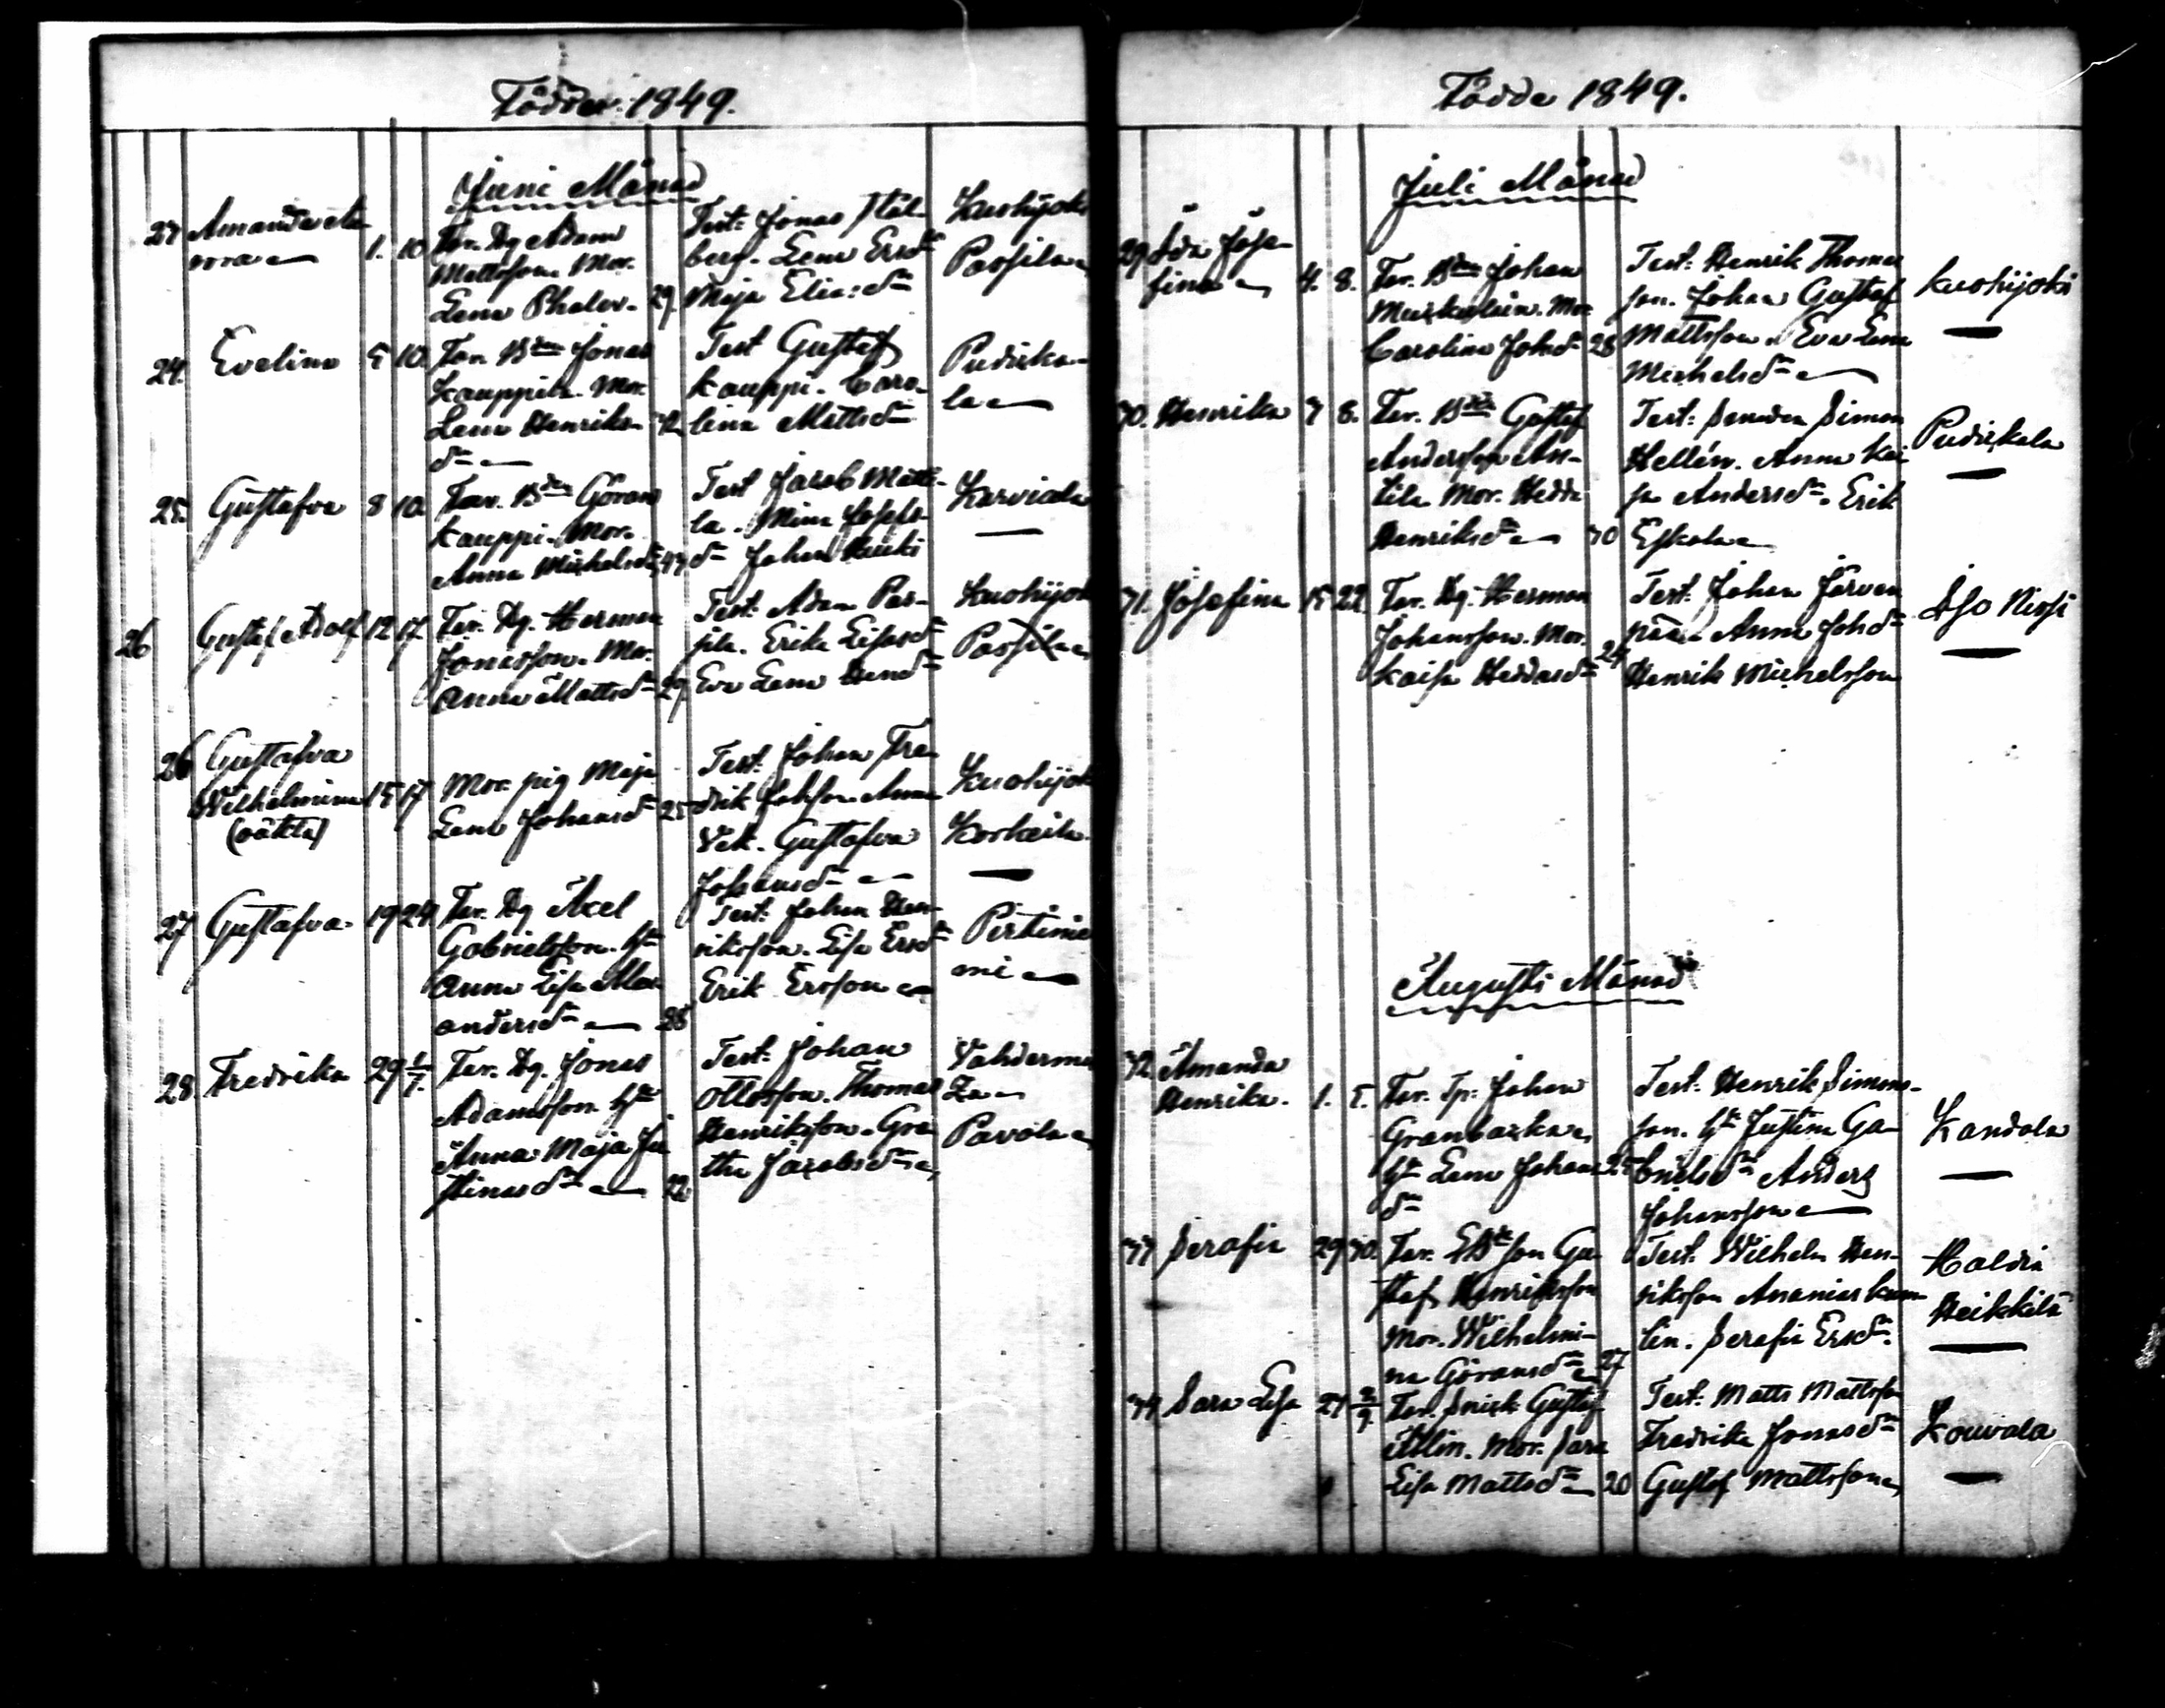 Födde 1849.
Juni Månad
27 Amanda No-
vra
1. 10. Far. Dg Adam
Mattsson. Mor.
Lena Phaler. 29.
Test: Jonas Stål-
berg. Lena Ersdr
Maja Eliasdr
Kuohijoki
Passila
24. Evelina 5 10. Far. Bden Jonas
Kauppila. Mor.
Lena Henriks-
dr
42
Test Gustaf
Kauppi. Caro-
lina Mattsdr
Pudicka-
la
25. Gustafva 8 10. Far. Bden Göran
Kauppi. Mor.
Anna Michelsdr 43
Test Jacob Matti-
la. Mina Josefs-
dr Johan
Karviala
26 Gustaf Adolf 12 17. Far. Dg. Herman
Jonasson. Mor.
Anna Mattsdr 29
Test: Adam Pas-
sila. Erika Eliasdr
Eva Lena Hendr
Kuohijoki
Passila
26 Gustafva
Wilhelmina
(oäkta)
15 17 Mor. pig Maja
Lena Johansdr 25
Test: Johan Fre-
drik Johsson. Anna
Vek. Gustafva
Johansdr
Kuohijoki
Korkeila
27 Gustafva 19 24. Far. Dg Axel
Gabrielsson. Hu
Anna Lisa Mar-
andersdr 28
Test: Johan Hen-
riksson. Lisa Ersdr
Erik Ersson
Pertinie
mi
28 Fredrika 29 1/7. Far. Dg. Jonas
Adamsson. Hu
Anna Maja Ju-
stinasdr 22.
Test: Johan
Ottosson. Thomas
Henriksson. Gre-
tha Jacobsdr
Vahderma
Za
Pavola
Födde 1849.
Juli Månad
29 Ida Jose-
fina
4. 8. Far. Bden Johan
Muskulain. Mor
Carolina Johsdr 28
Test: Henrik Thomas
son. Johan Gustaf
Mattsson. Eva Lena
Michelsdr
Kuohijoki
30. Henrika 7 8. Far. Bden Gustaf
Andersson An-
tila. Mor. Hedda
Henriksdr 30
Test: Simon
Hellén. Anna Kai-
sa Andersdr. Erik
Eskola
Pudickala
31. Josefina 15 22. Far. Dg. Herman
Johansson. Mor.
Kaisa Heddasdr 24
Test: Johan Järven
pää. Anna Johdr
Henrik Michelsson
Iso Nissi
Augusti Månad
32. Amanda
Henrika. 1. 5. Far. Tp. Johan
Granbacka.
Hu Lena Johans
dr
25
Test: Henrik Simons-
son. Hu Justina Ga-
brielsdr Anders
Johansson
Kandola
33 Serafia 29 30. Far. EBdeson Gu-
staf Henriksson
Mor. Wilhelmi-
na Göransdr 27
Test: Wilhelm Hen-
riksson Ananias
lin. Serafia Ersdr.
Haldia
Heikkilä
34 Sara Lisa 27 2/9. Far. Snick. Gustaf
Ahlin. Mor. Sara
Lisa Mattsdr 20
Test: Matts Mattsson
Fredrika Jonasdr
Gustaf Mattsson
Kouvala